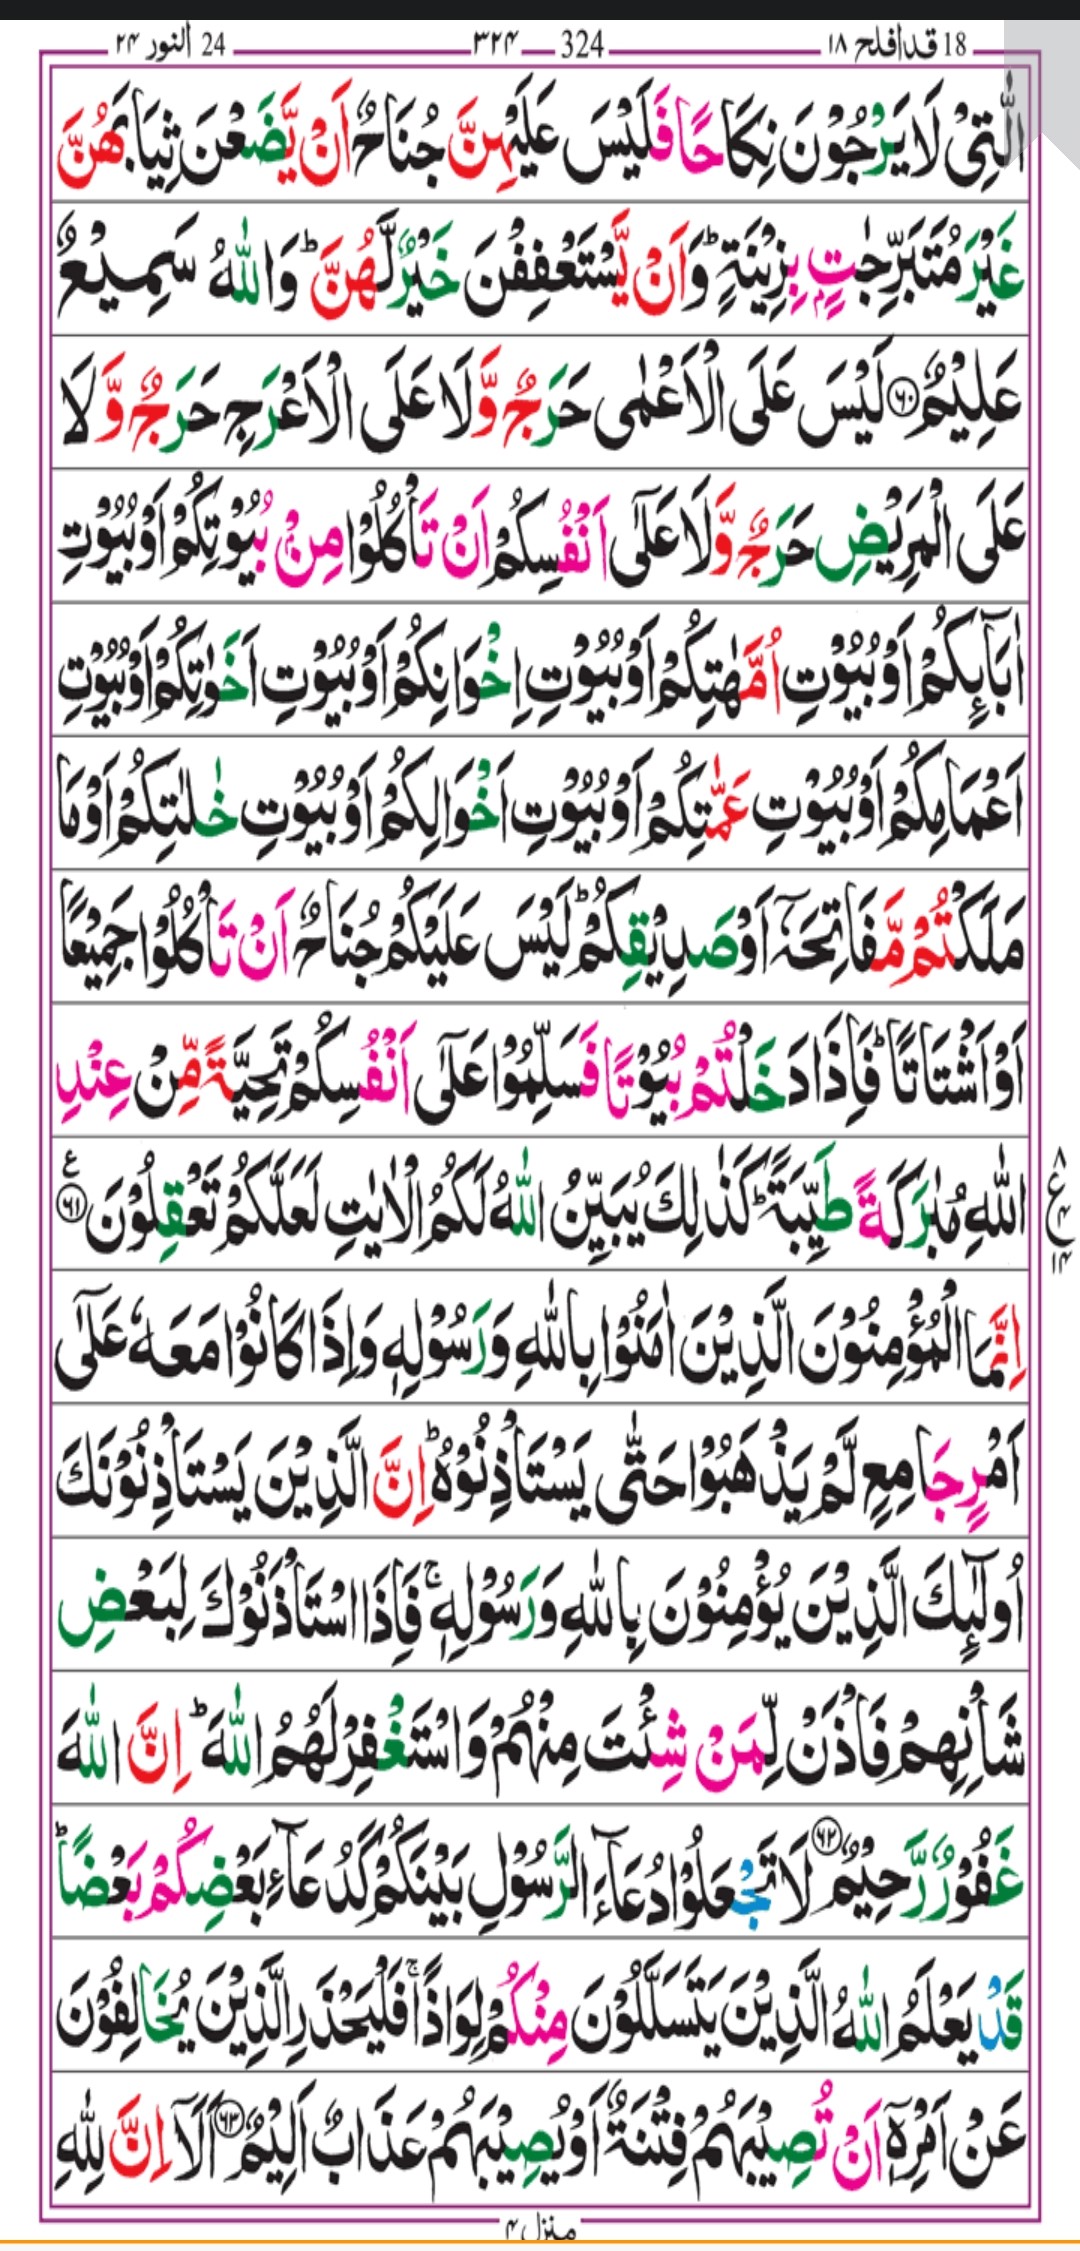 18 قدافلح ۱۸ 324 ۳۲۴ 24 النور ۲۴
الّٰتِیْ لَا یَرْجُوْنَ نِكَاحًا فَلَیْسَ عَلَیْهِنَّ جُنَاحٌ اَنْ یَّضَعْنَ ثِیَابَهُنَّ
غَیْرَ مُتَبَرِّجٰتٍۭ بِزِیْنَةٍؕ وَ اَنْ یَّسْتَعْفِفْنَ خَیْرٌ لَّهُنَّؕ وَ اللّٰهُ سَمِیْعٌ
عَلِیْمٌ ۶۰ لَیْسَ عَلَى الْاَعْمٰى حَرَجٌ وَّ لَا عَلَى الْاَعْرَجِ حَرَجٌ وَّ لَا
عَلَى الْمَرِیْضِ حَرَجٌ وَّ لَا عَلٰۤى اَنْفُسِكُمْ اَنْ تَاْكُلُوْا مِنْۢ بُیُوْتِكُمْ اَوْ بُیُوْتِ
اٰبَآىِٕكُمْ اَوْ بُیُوْتِ اُمَّهٰتِكُمْ اَوْ بُیُوْتِ اِخْوَانِكُمْ اَوْ بُیُوْتِ اَخَوٰتِكُمْ اَوْ بُیُوْتِ
اَعْمَامِكُمْ اَوْ بُیُوْتِ عَمّٰتِكُمْ اَوْ بُیُوْتِ اَخْوَالِكُمْ اَوْ بُیُوْتِ خٰلٰتِكُمْ اَوْ مَا
مَلَكْتُمْ مَّفَاتِحَهٗۤ اَوْ صَدِیْقِكُمْؕ لَیْسَ عَلَیْكُمْ جُنَاحٌ اَنْ تَاْكُلُوْا جَمِیْعًا
اَوْ اَشْتَاتًاؕ فَاِذَا دَخَلْتُمْ بُیُوْتًا فَسَلِّمُوْا عَلٰۤى اَنْفُسِكُمْ تَحِیَّةً مِّنْ عِنْدِ
اللّٰهِ مُبٰرَكَةً طَیِّبَةًؕ كَذٰلِكَ یُبَیِّنُ اللّٰهُ لَكُمُ الْاٰیٰتِ لَعَلَّكُمْ تَعْقِلُوْنَ ۶۱ ع
۸ ع ۴ ۱۴
اِنَّمَا الْمُؤْمِنُوْنَ الَّذِیْنَ اٰمَنُوْا بِاللّٰهِ وَ رَسُوْلِهٖ وَ اِذَا كَانُوْا مَعَهٗ عَلٰۤى
اَمْرٍ جَامِعٍ لَّمْ یَذْهَبُوْا حَتّٰى یَسْتَاْذِنُوْهُؕ اِنَّ الَّذِیْنَ یَسْتَاْذِنُوْنَكَ
اُولٰٓىِٕكَ الَّذِیْنَ یُؤْمِنُوْنَ بِاللّٰهِ وَ رَسُوْلِهٖۚ فَاِذَا اسْتَاْذَنُوْكَ لِبَعْضِ
شَاْنِهِمْ فَاْذَنْ لِّمَنْ شِئْتَ مِنْهُمْ وَ اسْتَغْفِرْ لَهُمُ اللّٰهَؕ اِنَّ اللّٰهَ
غَفُوْرٌ رَّحِیْمٌ ۶۲ لَا تَجْعَلُوْا دُعَآءَ الرَّسُوْلِ بَیْنَكُمْ كَدُعَآءِ بَعْضِكُمْ بَعْضًاؕ
قَدْ یَعْلَمُ اللّٰهُ الَّذِیْنَ یَتَسَلَّلُوْنَ مِنْكُمْ لِوَاذًاۚ فَلْیَحْذَرِ الَّذِیْنَ یُخَالِفُوْنَ
عَنْ اَمْرِهٖۤ اَنْ تُصِیْبَهُمْ فِتْنَةٌ اَوْ یُصِیْبَهُمْ عَذَابٌ اَلِیْمٌ ۶۳ اَلَاۤ اِنَّ لِلّٰهِ
منزل ۴